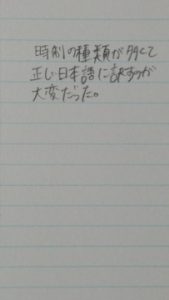 時制の種類が多くて
正しい日本語に訳すのが
大変だった。